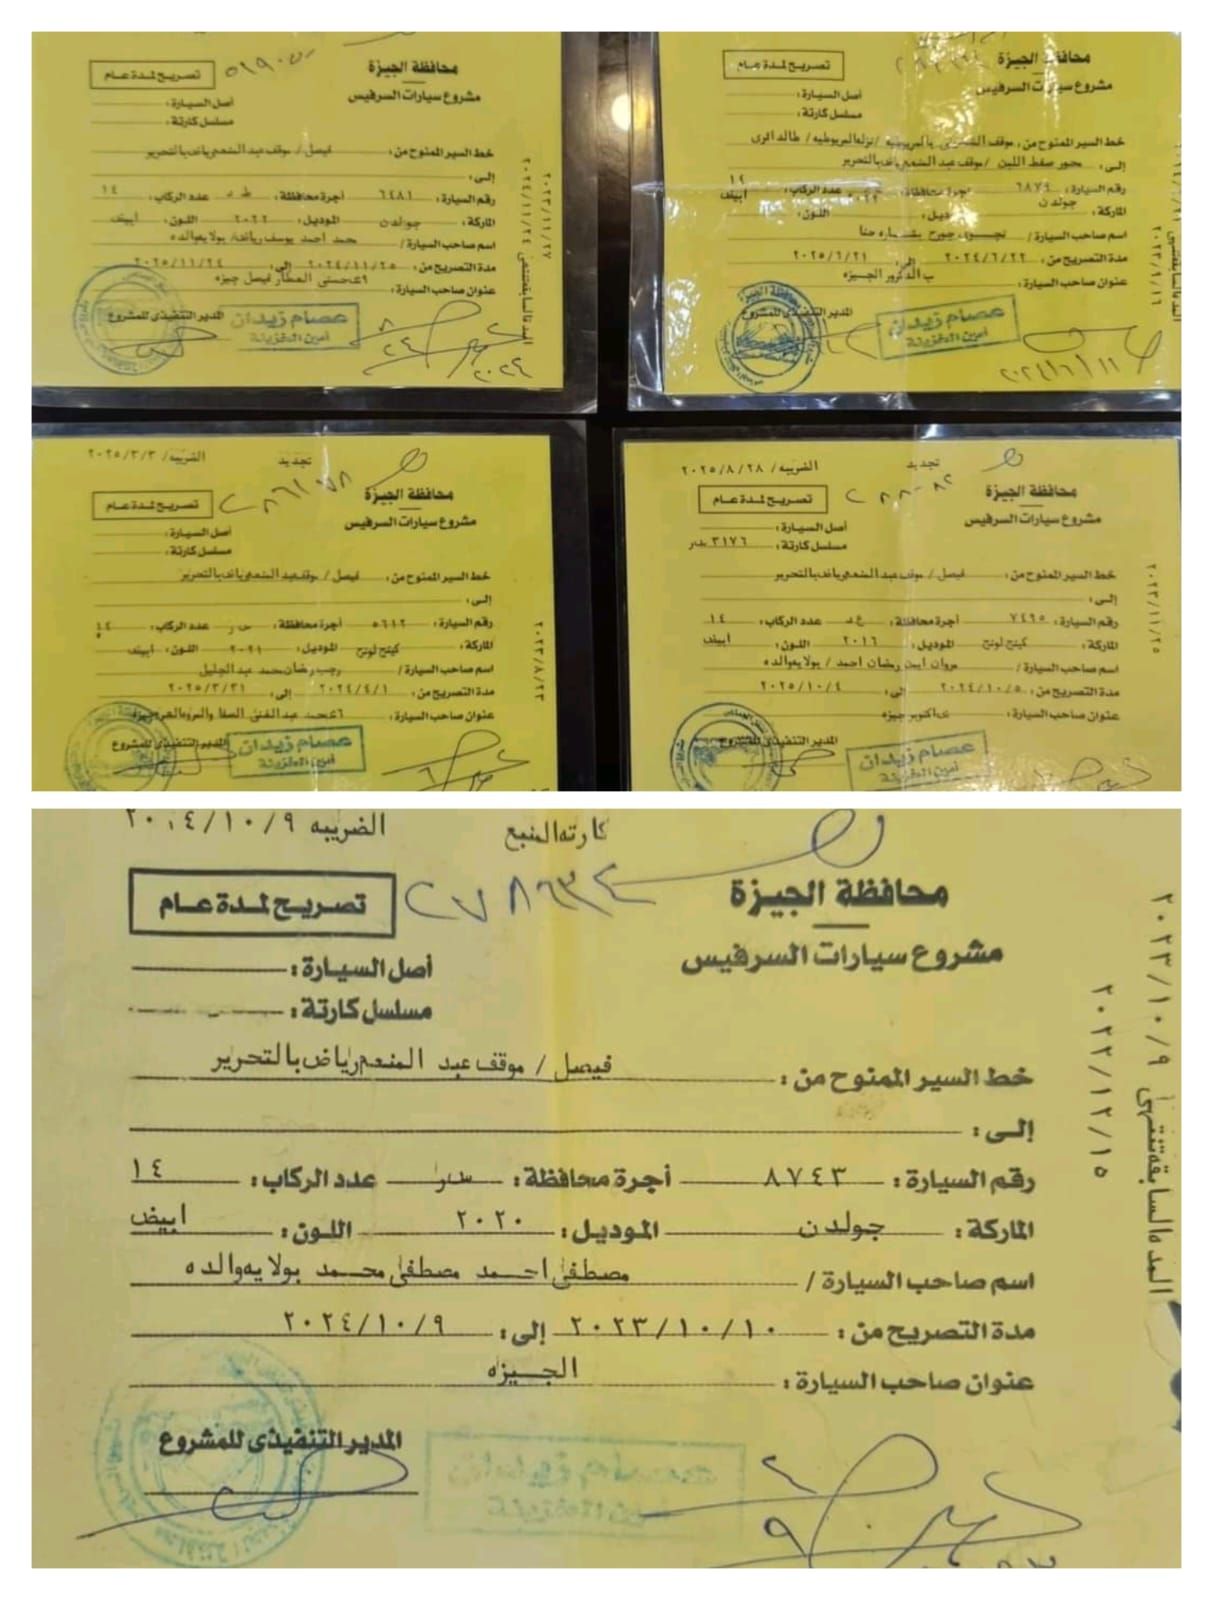 محافظة الجيزة
تصريح لمدة عام
مشروع سيارات السرفيس
أصل السيارة :
مسلسل كارتة :
خط السير الممنوح من : فيصل / موقف عبد المنعم رياض بالتحرير
إلى :
رقم السيارة : ٦٤٨١ أجرة محافظة : ط د عدد الركاب : ١٤
الماركة : جولدن الموديل : ٢٠٢٢ اللون : أبيض
اسم صاحب السيارة / محمد احمد يوسف رياض بولايه والده
مدة التصريح من : ٢٠٢٤/١١/٢٥ إلى : ٢٠٢٥/١١/٢٤
عنوان صاحب السيارة : حسنى العطار فيصل جيزه
المدير التنفيذى للمشروع
عصام زيدان
أمين الخزينة
٢٠٢٤
محافظة الجيزة
تصريح لمدة عام
مشروع سيارات السرفيس
أصل السيارة :
مسلسل كارتة :
خط السير الممنوح من : موقف
إلى : محور صفط اللبن / موقف عبد المنعم رياض بالتحرير
رقم السيارة : ٦٨٧٤ أجرة محافظة : عدد الركاب : ١٤
الماركة : جولدن الموديل : اللون : أبيض
اسم صاحب السيارة / جورج
مدة التصريح من : ٢٠٢٤/٦/٢٢ إلى : ٢٠٢٥/٦/٢١
عنوان صاحب السيارة : ب الدكرور الجيزه
المدير التنفيذى للمشروع
عصام زيدان
أمين الخزينة
٢٠٢٤/٦/١١
تجديد الضريبه / ٢٠٢٥/٣/٣
محافظة الجيزة
تصريح لمدة عام
مشروع سيارات السرفيس
أصل السيارة :
مسلسل كارتة :
خط السير الممنوح من : فيصل / موقف عبد المنعم رياض بالتحرير
إلى :
رقم السيارة : ٥٦١٢ أجرة محافظة : عدد الركاب : ١٤
الماركة : كينج لونج الموديل : ٢٠٢١ اللون : أبيض
اسم صاحب السيارة / رجب رمضان محمد عبد الجليل
مدة التصريح من : ٢٠٢٤/٤/١ إلى : ٢٠٢٥/٣/٣١
عنوان صاحب السيارة :
المدير التنفيذى للمشروع
عصام زيدان
أمين الخزينة
٢٠٢٣/٨/٢٣
تجديد الضريبه / ٢٠٢٥/٨/٢٨
محافظة الجيزة
تصريح لمدة عام
مشروع سيارات السرفيس
أصل السيارة :
مسلسل كارتة : ٣١٧٦
خط السير الممنوح من : فيصل / موقف عبد المنعم رياض بالتحرير
إلى :
رقم السيارة : ٧٤٦٥ أجرة محافظة : عدد الركاب : ١٤
الماركة : كينج لونج الموديل : ٢٠١٦ اللون : أبيض
اسم صاحب السيارة / مروان ايمن رمضان احمد / بولايه والده
مدة التصريح من : ٢٠٢٤/١٠/٥ إلى : ٢٠٢٥/١٠/٤
عنوان صاحب السيارة : اكتوبر جيزه
المدير التنفيذى للمشروع
عصام زيدان
أمين الخزينة
٢٠٢٣/١١/٢٥
كارته المنبع الضريبه ٢٠٢٤/١٠/٩
محافظة الجيزة
تصريح لمدة عام
مشروع سيارات السرفيس
أصل السيارة :
مسلسل كارتة :
خط السير الممنوح من : فيصل / موقف عبد المنعم رياض بالتحرير
إلى :
رقم السيارة : ٨٧٤٣ أجرة محافظة : عدد الركاب : ١٤
الماركة : جولدن الموديل : ٢٠٢٠ اللون : ابيض
اسم صاحب السيارة / مصطفى احمد مصطفى محمد بولايه والده
مدة التصريح من : ٢٠٢٣/١٠/١٠ إلى : ٢٠٢٤/١٠/٩
عنوان صاحب السيارة : الجيزه
المدير التنفيذى للمشروع
المده السابقه تنتهى ٢٠٢٣/١٠/٩
٢٠٢٢/١٢/١٥